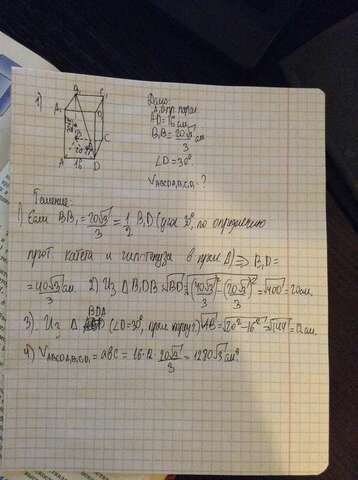 1)
B₁
C₁
A₁
D₁
C
20
A
16
D
Дано:
AD=16см
B₁B=20√3/3 см
∠D=30°
V ABCDA₁B₁C₁D₁ - ?
Решение:
1) Если BB₁=20√3/3=1/2 B₁D (угол 30°, по
прот. катета и гипотенуза в прям. Δ)⇒ B₁D=
=40√3/3 см. 2) Из Δ B₁DB √BD=√(40√3/3)²-(20√3/3)²=√400=20см.
3). Из Δ BDA (∠D=30°, прям. ) √AB=√20²-16²=√144=12см.
4) V ABCDA₁B₁C₁D₁=abc=16·12·20√3/3=1280√3 см³